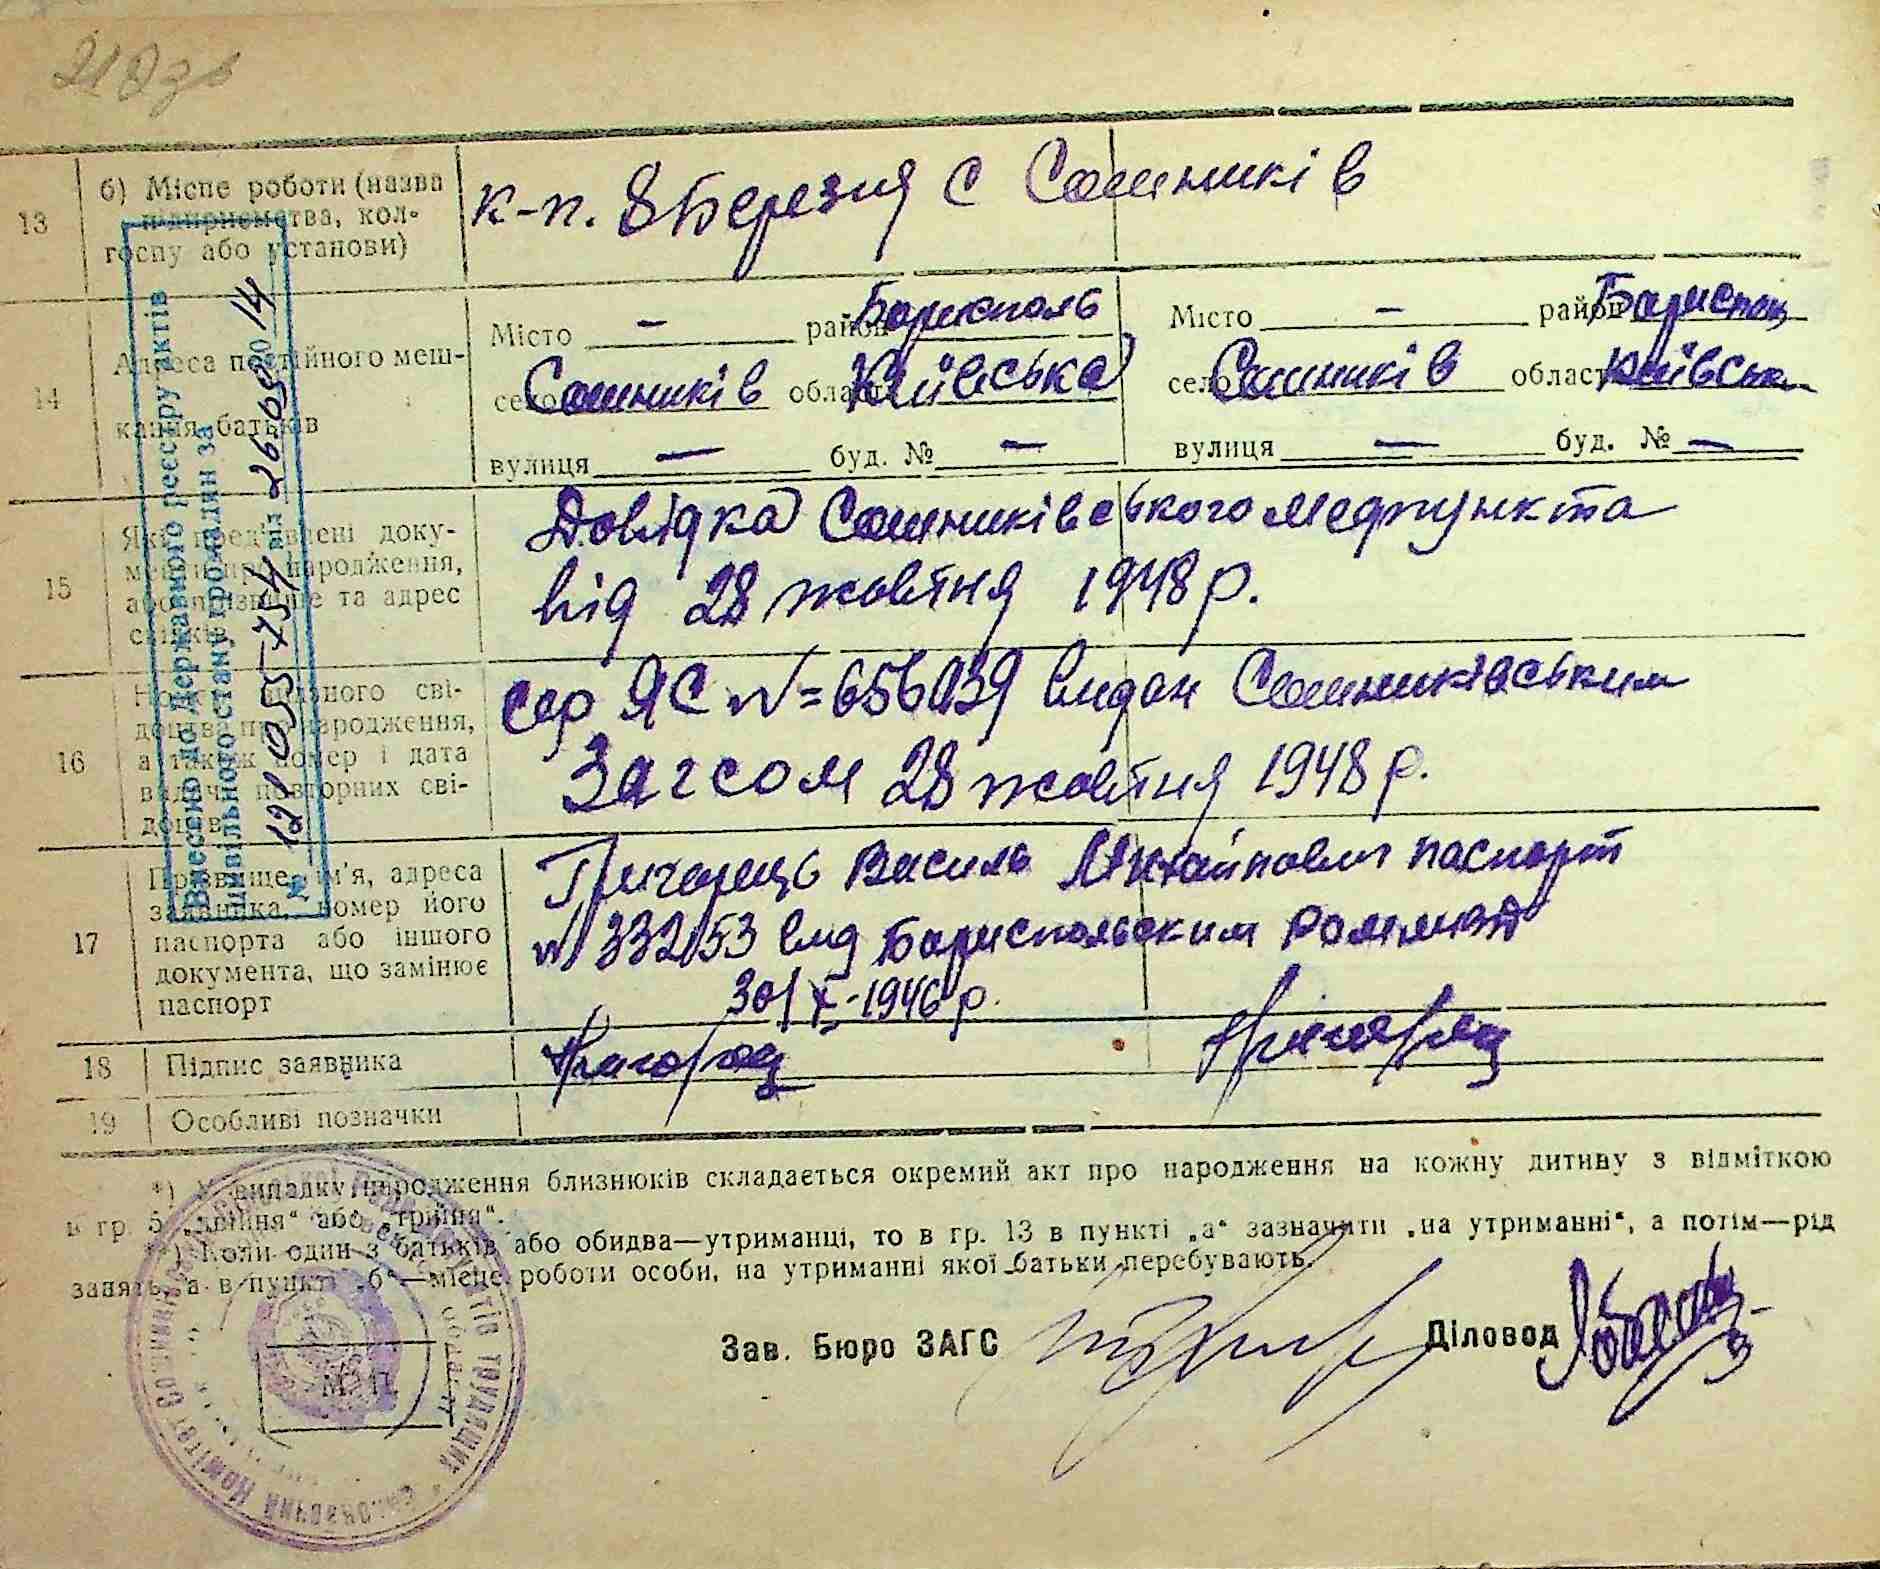 13 б) Місце роботи (назва підприємства, колгоспу або установи) к-п. 8 Березня с Сошників
14 Адреса постійного мешкання батьків
Місто — район Бориспіль
село Сошників область Київська
вулиця — буд. № —
Місто — район Борисп
село Сошників область Київськ
вулиця — буд. № —
15 Які пред'явлені документи про народження, або прізвище та адрес свідків
Довідка Сошниківського медпункта
від 28 жовтня 1948 р.
16 Номер виданого свідоцтва про народження, а також номер і дата видачі повторних свідоцтв
сер ЯС № 656039 видан Сошниківським
Загсом 28 жовтня 1948 р.
17 Прізвище, ім'я, адреса заявника, номер його паспорта або іншого документа, що замінює паспорт
Василь Михайлович паспорт
№ 332153 вид Бориспольским
30/X-1946 р.
18 Підпис заявника
19 Особливі позначки
*) У випадку народження близнюків складається окремий акт про народження на кожну дитину з відміткою
в гр. 5 „двійня“ або „трійня“.
**) Коли один з батьків або обидва—утриманці, то в гр. 13 в пункті „а“ зазначити „на утриманні“, а потім—рід
занять, а в пункті „б“—місце роботи особи, на утриманні якої батьки перебувають.
Зав. Бюро ЗАГС
Діловод
М. П.
Внесено до Державного реєстру актів
цивільного стану громадян за
від 26.09 2014